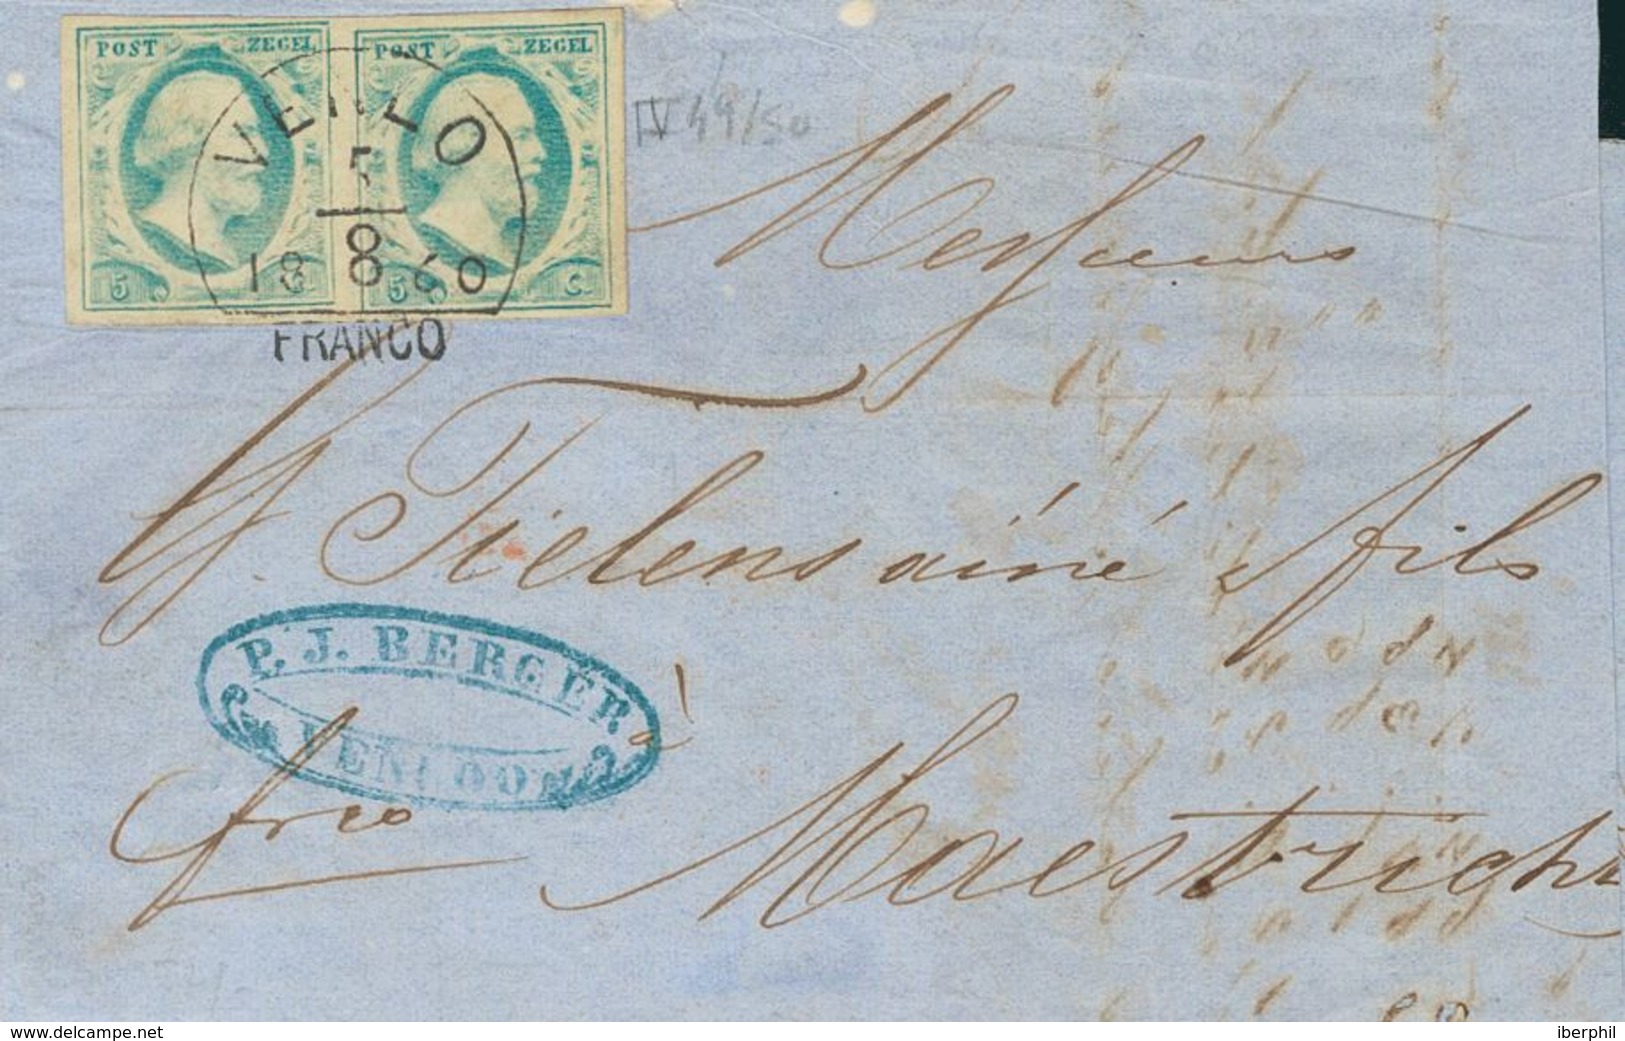 POST ZEGEL POST ZEGEL
VENLO
5
8
18 60
5 C. 5 C.
FRANCO
IV 49/50
Messieurs
Tielens ainé & fils
à
P. J. BERGER
VENLOO
frco
Maestricht
www.delcampe.net
iberphil